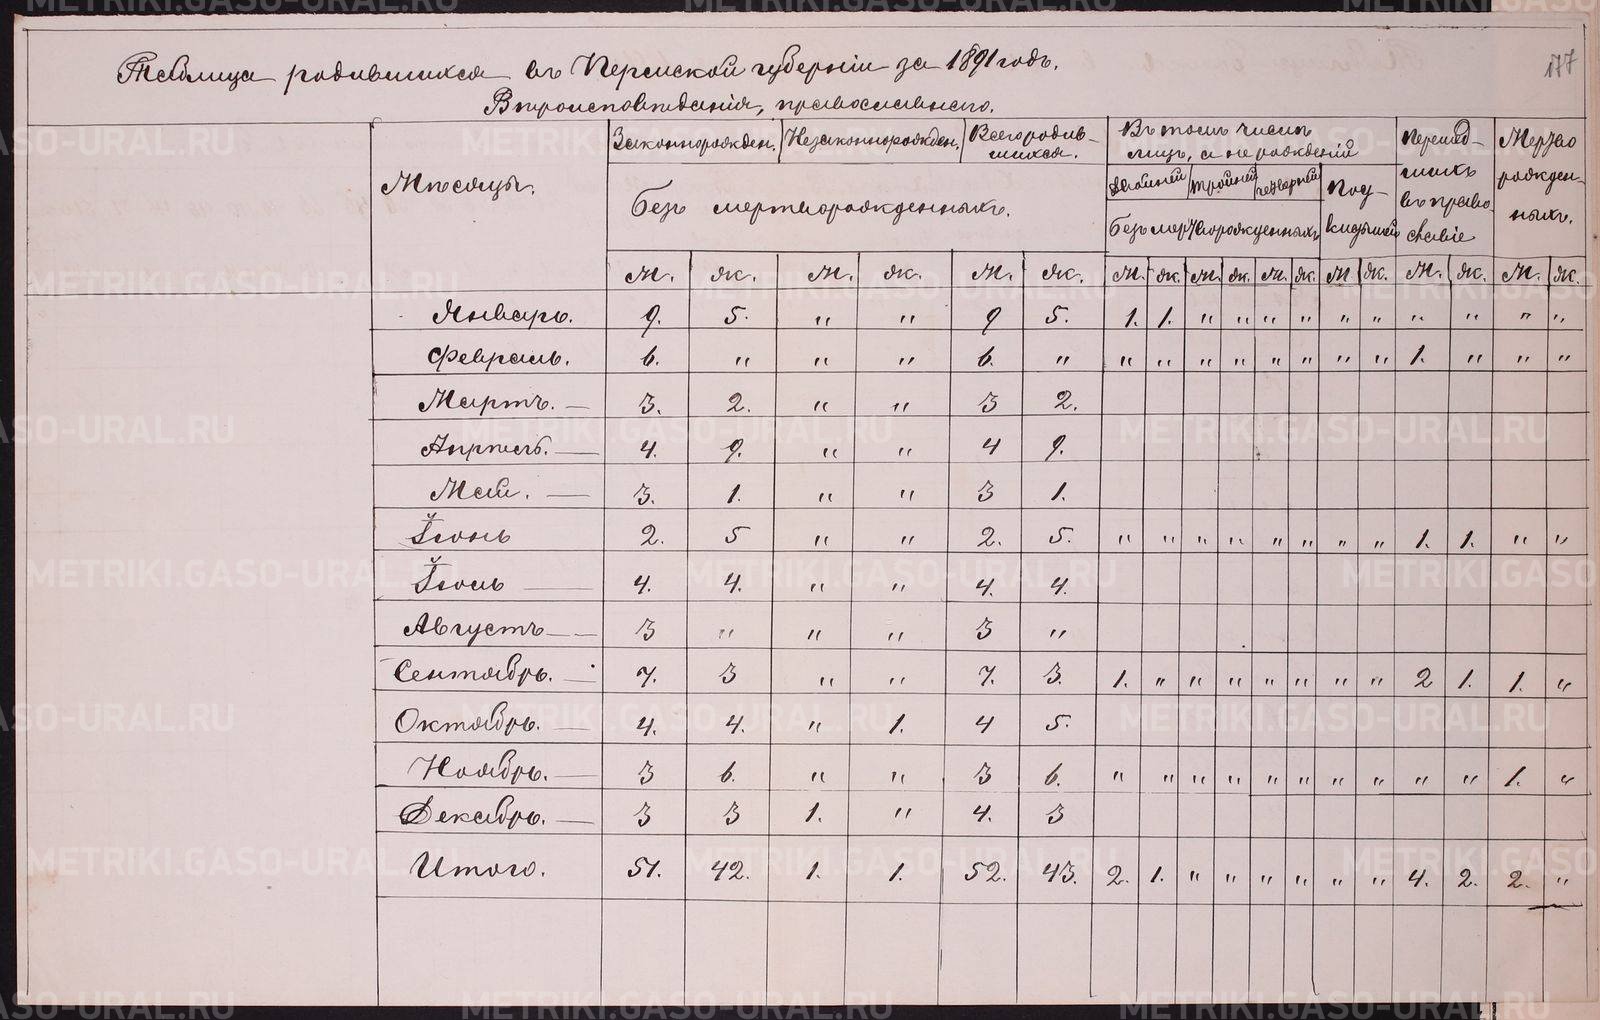 177
Таблица родившихся въ Пермской губерніи за 1891 годъ.
Вѣроисповѣданія, православнаго.
Мѣсяцы. Законнорожден. Незаконнорожден. Всего родив-шихся. Въ томъ числѣ лицъ, а не рожденій Перешед-шихъ въ право-славіе Мертво рожден-ныхъ.
Безъ мертворожденныхъ. двойней тройней четверней Под-кидышей
Безъ мертворожденныхъ
М. Ж. М. Ж. М. Ж. М. Ж. М. Ж. М. Ж. М Ж. М. Ж. М. Ж.
Январь. 9. 5. " " 9 5. 1. 1. " " " " " " " " " "
Февраль. 6. " " " 6. " " " " " " " " " 1. " " "
Мартъ. — 3. 2. " " 3 2.
Апрѣль. — 4. 9. " " 4 9.
Май. — 3. 1. " " 3 1.
Іюнь 2. 5 " " 2. 5. " " " " " " " " 1. 1. " "
Іюль — 4. 4. " " 4. 4.
Августъ — 3 " " " 3 "
Сентябрь. — 7. 3 " " 7. 3. 1. " " " " " " " 2 1. 1. "
Октябрь. — 4. 4. " 1. 4 5.
Ноябрь. — 3 6. " " 3 6. " " " " " " " " " " 1. "
Декабрь. — 3 3 1. " 4. 3
Итого. 51. 42. 1. 1. 52. 43. 2. 1. " " " " " " 4. 2. 2. "
METRIKI.GASO-URAL.RU